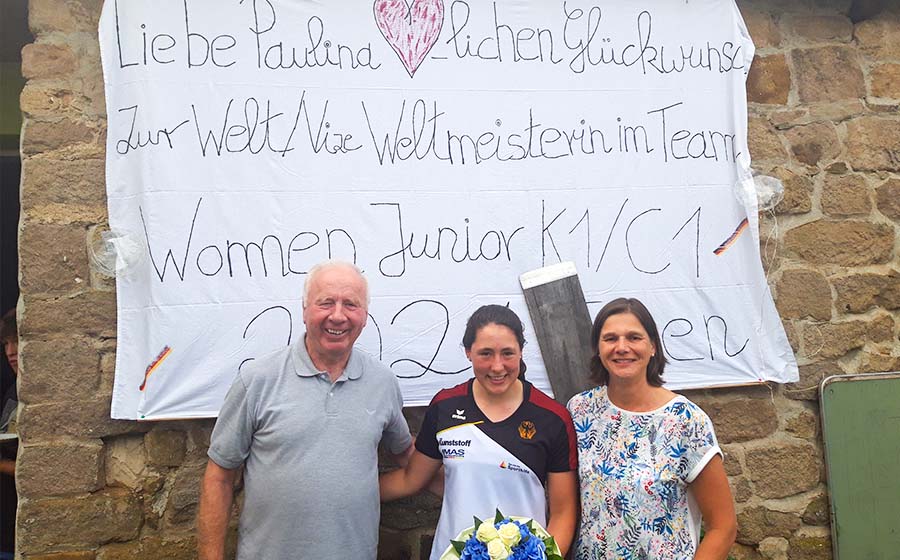 Liebe Paulina
lichen Glückwunsc
Zur Welt/Vize Weltmeisterin im Team
Women Junior K1/C1
202
erima
Kunststoff
IMAS
Sporthilfe